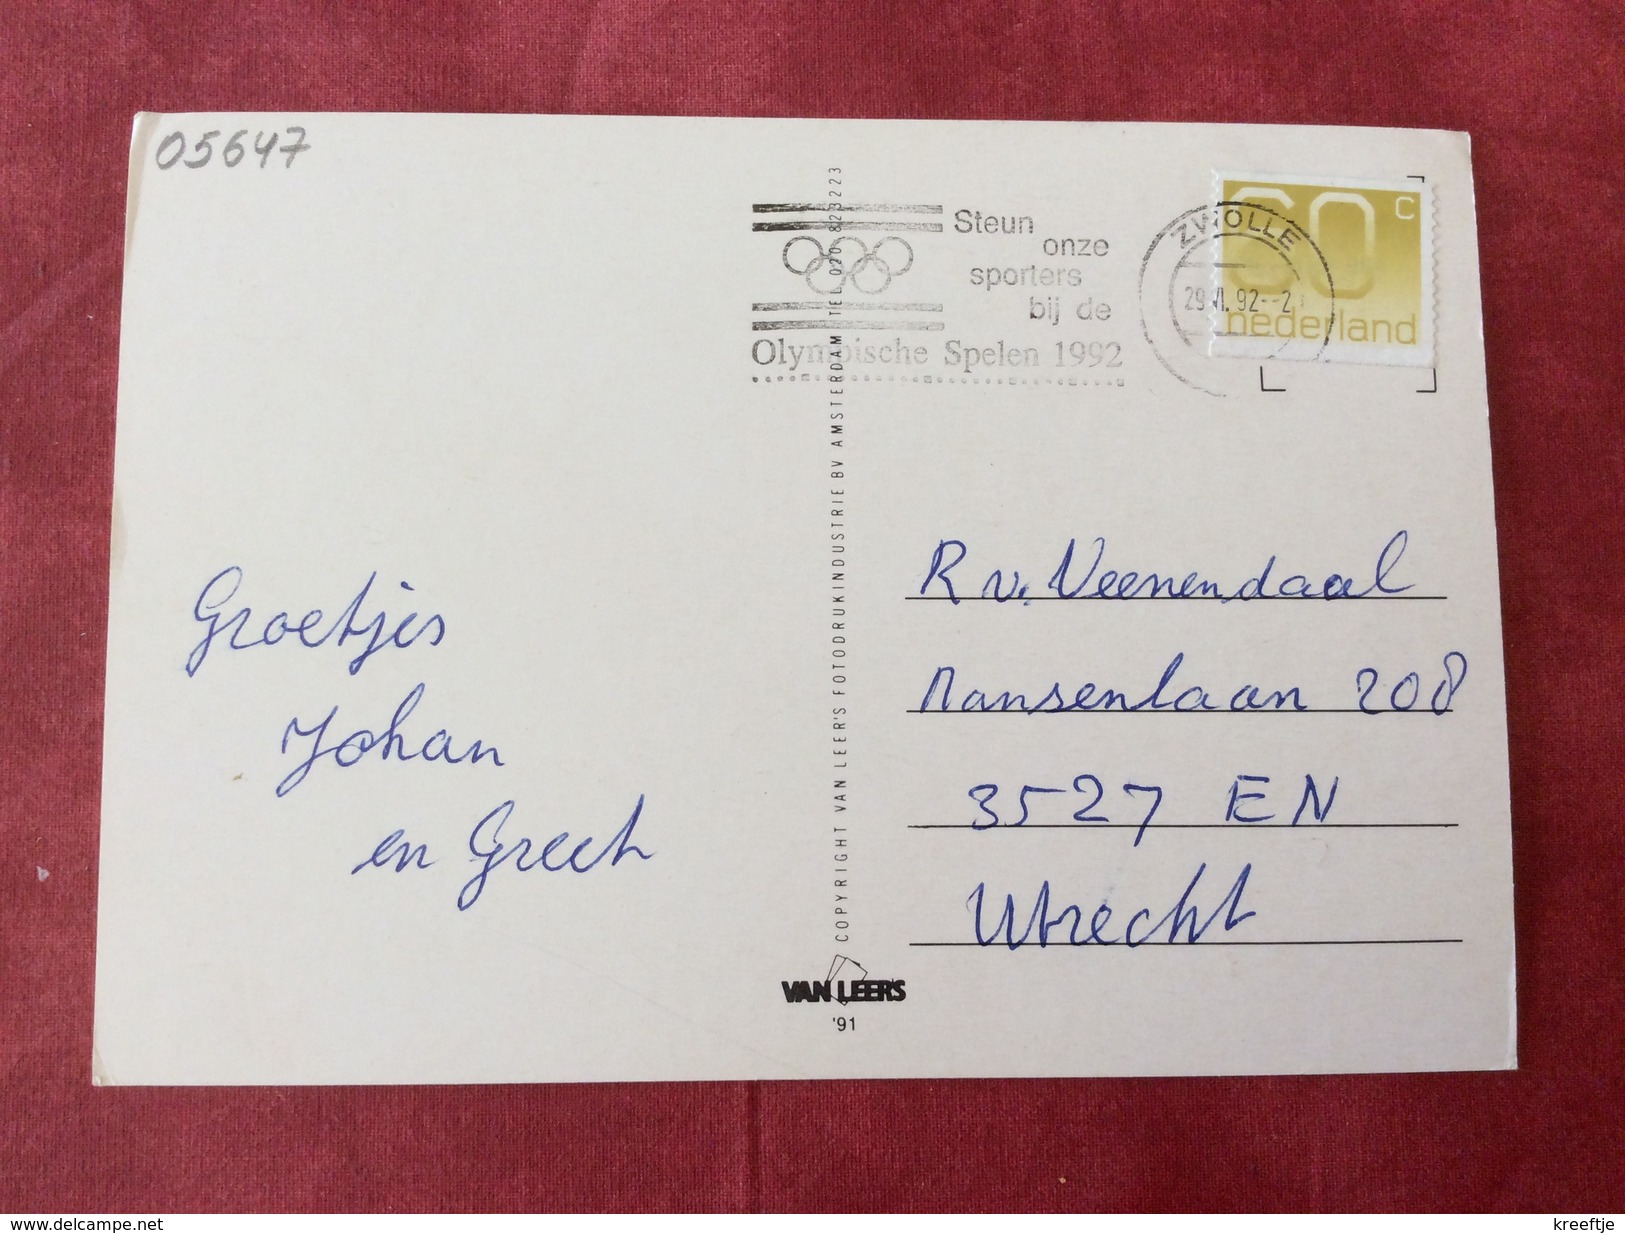 05647
Steun
onze
sporters
bij de
Olympische Spelen 1992
ZWOLLE
29.VI.92--2
60 c
nederland
COPYRIGHT VAN LEER'S FOTODRUKINDUSTRIE BV AMSTERDAM TEL 020 823223
Groetjes
Johan
en Greet
R v. Veenendaal
Nansenlaan 208
3527 EN
Utrecht
VAN LEER'S
'91
www.delcampe.net
kreeftje